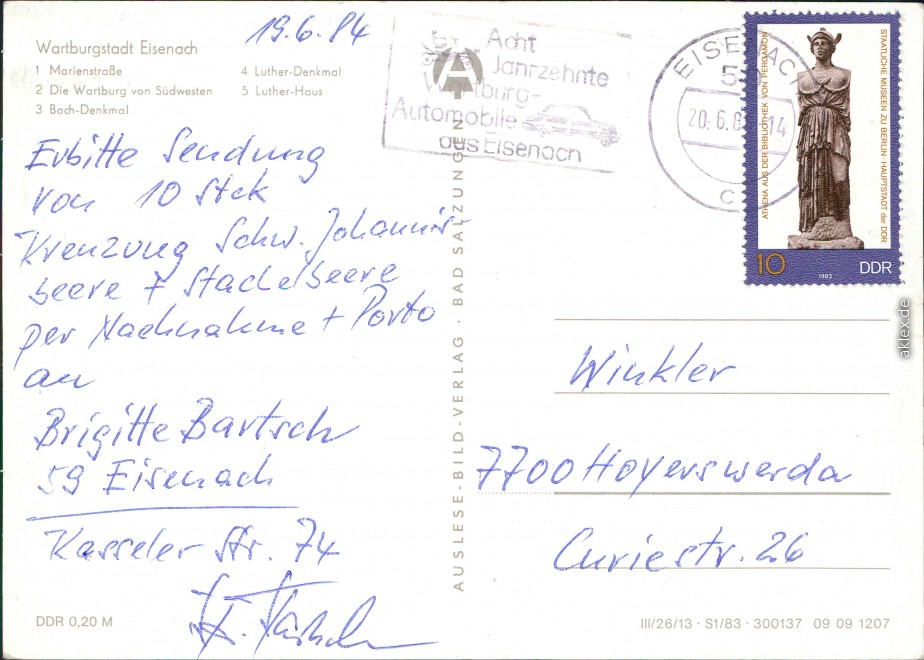 19.6.84
Wartburgstadt Eisenach
1 Marienstraße
2 Die Wartburg von Südwesten
3 Bach-Denkmal
4 Luther-Denkmal
5 Luther-Haus
Erbitte Sendung
von 10 Stck
Kreuzung Schw. Johannis-
beere + Stachelbeere
per Nachnahme + Porto
an
Brigitte Bartsch
59 Eisenach
Kasseler Str. 74
DDR 0,20 M
AUSLESE-BILD-VERLAG · BAD SALZUNGEN
A
Acht
Jahrzehnte
Wartburg-
Automobile
aus Eisenach
EISENACH
20.6.8
14
ATHENA AUS DER BIBLIOTHEK VON PERGAMON
STAATLICHE MUSEEN ZU BERLIN · HAUPTSTADT der DDR
10
1983
DDR
Winkler
7700 Hoyerswerda
Curiestr. 26
III/26/13 · S1/83 · 300137 09 09 1207
aklex.de